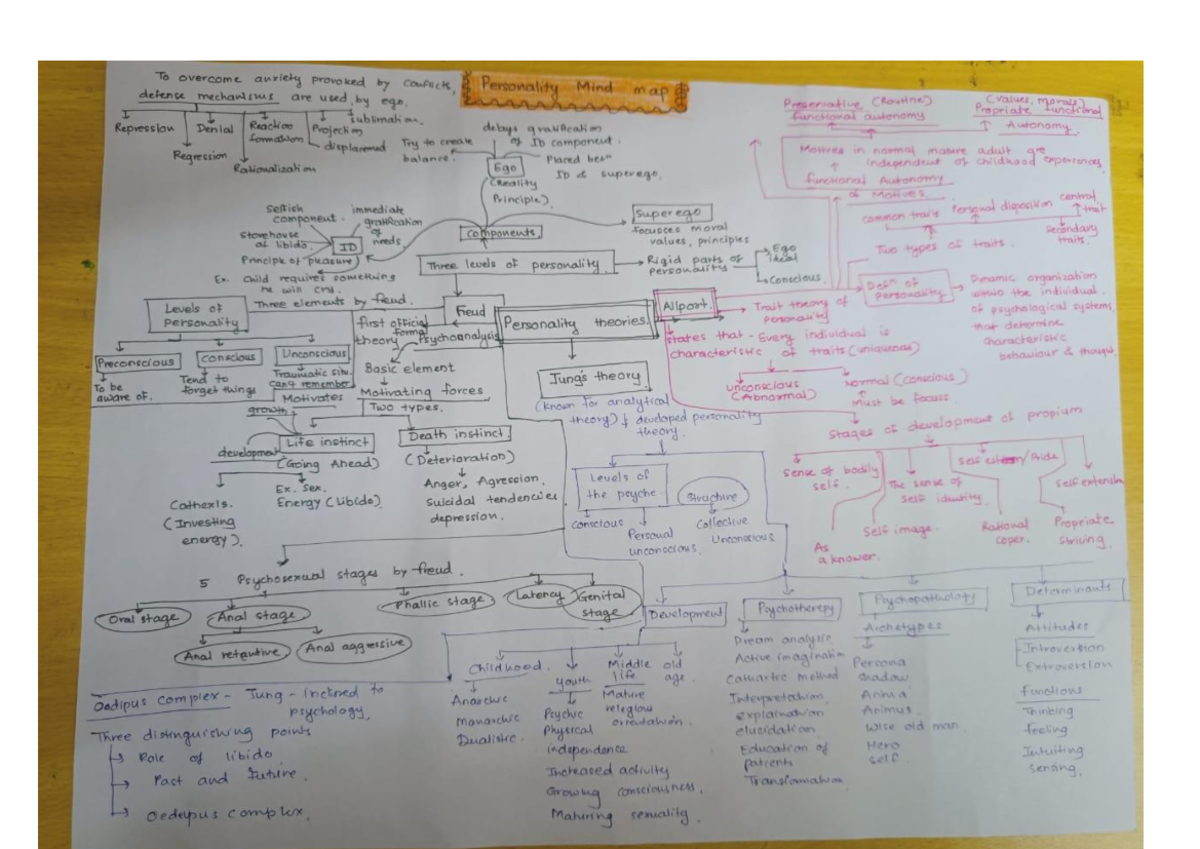 Personality Mind map
To overcome anxiety provoked by conflicts,
defense mechanisms are used by ego.
Repression
Denial
Reaction
formation
Projection
sublimation.
displacement
Regression
Rationalization
delays gratification
of ID component.
Try to create
balance.
Ego
(Reality
Principle).
Placed betn
ID & superego.
Selfish
component.
immediate
gratification
of
needs.
Storehouse
of libido.
ID
Principle of (pleasure)
Ex. Child requires something
he will cry.
Components
Superego
focusses moral
values, principles
Three levels of personality
Rigid parts of
personality
Ego
Ideal
Conscious.
Preservative (Routine)
functional autonomy
(values, morals)
Propriate functional
Autonomy.
Motives in normal mature adult are
independent of childhood experiences
functional Autonomy
of Motives.
common traits
Personal disposition
central
trait
Secondary
traits.
Two types of traits.
Levels of
Personality
Three elements by freud.
Freud
first official
formal
theory
Psychoanalysis
Personality theories.
Allport.
Trait theory of
personality
Defn of
Personality
Dynamic organization
within the individual.
of psychological systems
that determine
characteristic
behaviour & thought.
states that - Every individual is
characteristic of traits (uniqueness)
unconscious
(Abnormal)
Normal (conscious)
Must be focuss
Preconscious
To be
aware of.
Conscious
Tend to
forget things
Unconscious
Traumatic situ.
can't remember
Basic element
Motivating forces
Two types.
Motivates
growth
development
Life instinct
(Going Ahead)
Death instinct
(Deterioration)
Anger, Agression.
Suicidal tendencies
depression.
Cathexis.
(Investing
energy).
Ex. Sex.
Energy (Libido)
Jung's theory
(known for analytical
theory) & developed personality
theory.
Levels of
the psyche.
Structure
Conscious
Personal
unconscious.
Collective
Unconscious
Stages of development of propium
Sense of bodily
self.
The sense of
self identity.
Self extension
As
a knower.
Self image.
Rational
coper.
Propriate
striving.
5 Psychosexual stages by freud.
Oral stage
Anal stage
Phallic stage
Latency
Genital
stage
Anal retentive
Anal aggressive
Oedipus complex - Jung - inclined to
psychology.
Three distinguishing points
Role of libido
Past and Future.
Oedeipus complex.
Development
Childhood.
Anarchic
Monarchic
Dualistic.
youth
Psychic
Physical
independence
Increased activity
Growing consciousness.
Maturing sexuality.
Middle
life
Mature
relegiou
orientation.
old
age.
Psychotherepy
Dream analysis
Active imagination
Cathartic method
Interpretation
explaination
elucidation.
Education of
patients
Transformation
Psychopathology
Archetypes
Persona
shadow
Anima
Animus.
Wise old man.
Hero
self.
Determinants
Attitudes
Introvertion
Extroversion
functions
Thinking
feeling
Intuiting
sensing.